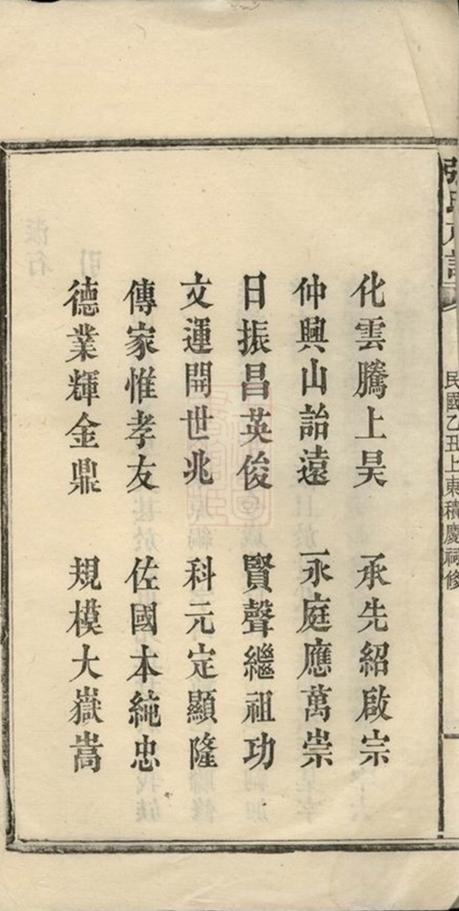 民國乙丑上東積慶祠修
化雲騰上昊 承先紹啟宗
仲興山詒遠 永庭應萬崇
日振昌英俊 賢聲繼祖功
文運開世兆 科元定顯隆
傳家惟孝友 佐國本純忠
德業輝金鼎 規模大嶽嵩